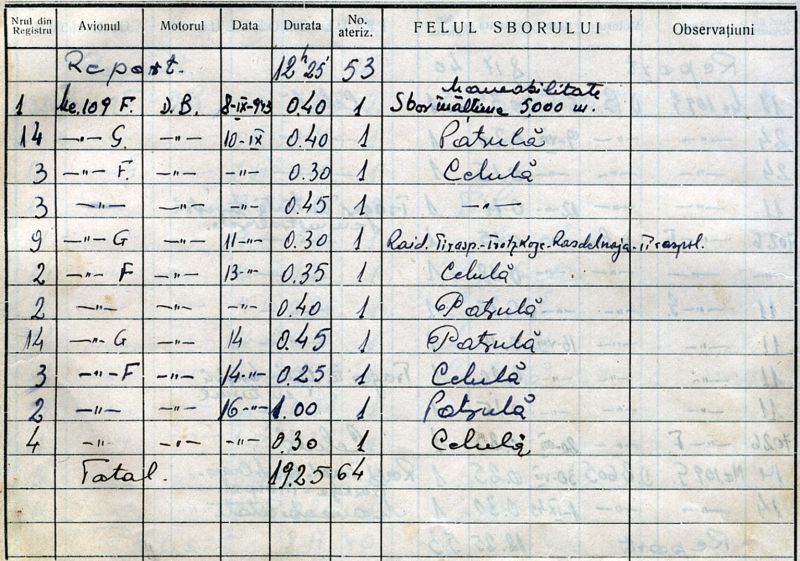 Nrul din Registru Avionul Motorul Data Durata No. ateriz. FELUL SBORULUI Observațiuni
Report. 12h 25' 53
1 Me. 109 F. D.B. 8-IX-943 0.40 1 Maneabilitate Sbor înălțime 5.000 m.
14 —"— G. —"— 10-IX 0.40 1 Patrulă
3 —"— F. —"— —"— 0.30 1 Celulă
3 —"— —"— —"— 0.45 1 —"—
9 —"— G —"— 11-"- 0.30 1 Raid. Tirasp.-Trotzkoje-Rasdelnaja-Tiraspol.
2 —"— F —"— 13-"- 0.35 1 Celulă
2 —"— —"— —"— 0.40 1 Patrulă
14 —"— G —"— 14 0.45 1 Patrulă
3 —"— F —"— 14-"- 0.25 1 Celulă
2 —"— —"— 16-"- 1.00 1 Patrulă
4 —"— —"— —"— 0.30 1 Celulă
Total. 19.25 64